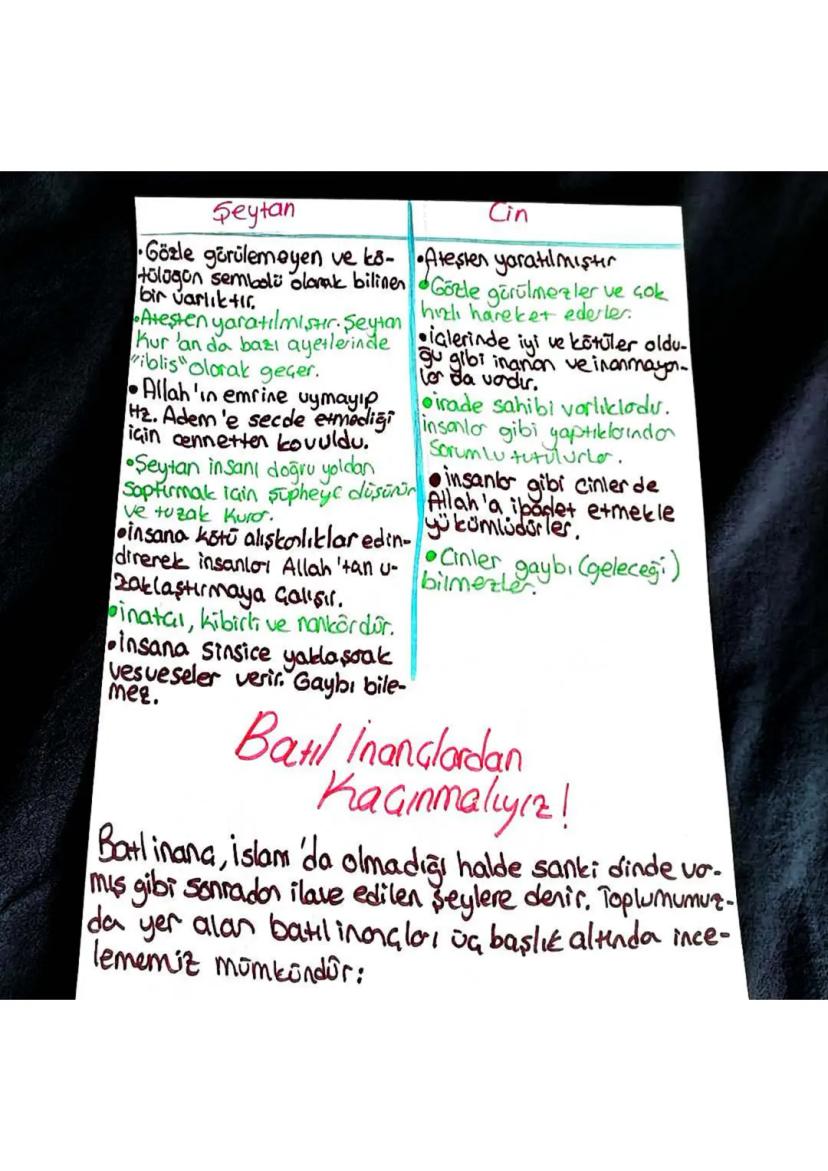 Şeytan
•Gözle görülemeyen ve kö-
tülüğün sembolü olarak bilinen
bir varlıktır.
•Ateşten yaratılmıştır. Şeytan
Kur'an da bazı ayetlerinde
"iblis" olarak geçer.
•Allah'ın emrine uymayıp
Hz. Adem'e secde etmediği
için cennetten kovuldu.
•Şeytan insanı doğru yoldan
saptırmak için şüpheye düşürür
ve tuzak kurar.
•insana kötü alışkanlıklar edin-
direrek insanları Allah'tan u-
zaklaştırmaya çalışır.
•inatçı, kibirli ve nankördür.
•İnsana sinsice yaklaşarak
vesveseler verir. Gaybı bile-
mez.
Cin
•Ateşten yaratılmıştır
•Gözle görülmezler ve çok
hızlı hareket ederler.
•içlerinde iyi ve kötüler oldu-
ğu gibi inanan ve inanmayan-
lar da vardır.
•irade sahibi varlıklardır.
insanlar gibi yaptıklarından
sorumlu tutulurlar.
•insanlar gibi cinler de
Allah'a ibadet etmekle
yükümlüdürler.
•Cinler gaybı (geleceği)
bilmezler.
Batıl İnançlardan
Kaçınmalıyız!
Batıl inanç, islam'da olmadığı halde sanki dinde var-
mış gibi sonradan ilave edilen şeylere denir. Toplumumuz-
da yer alan batıl inançları üç başlık altında ince-
lememiz mümkündür: